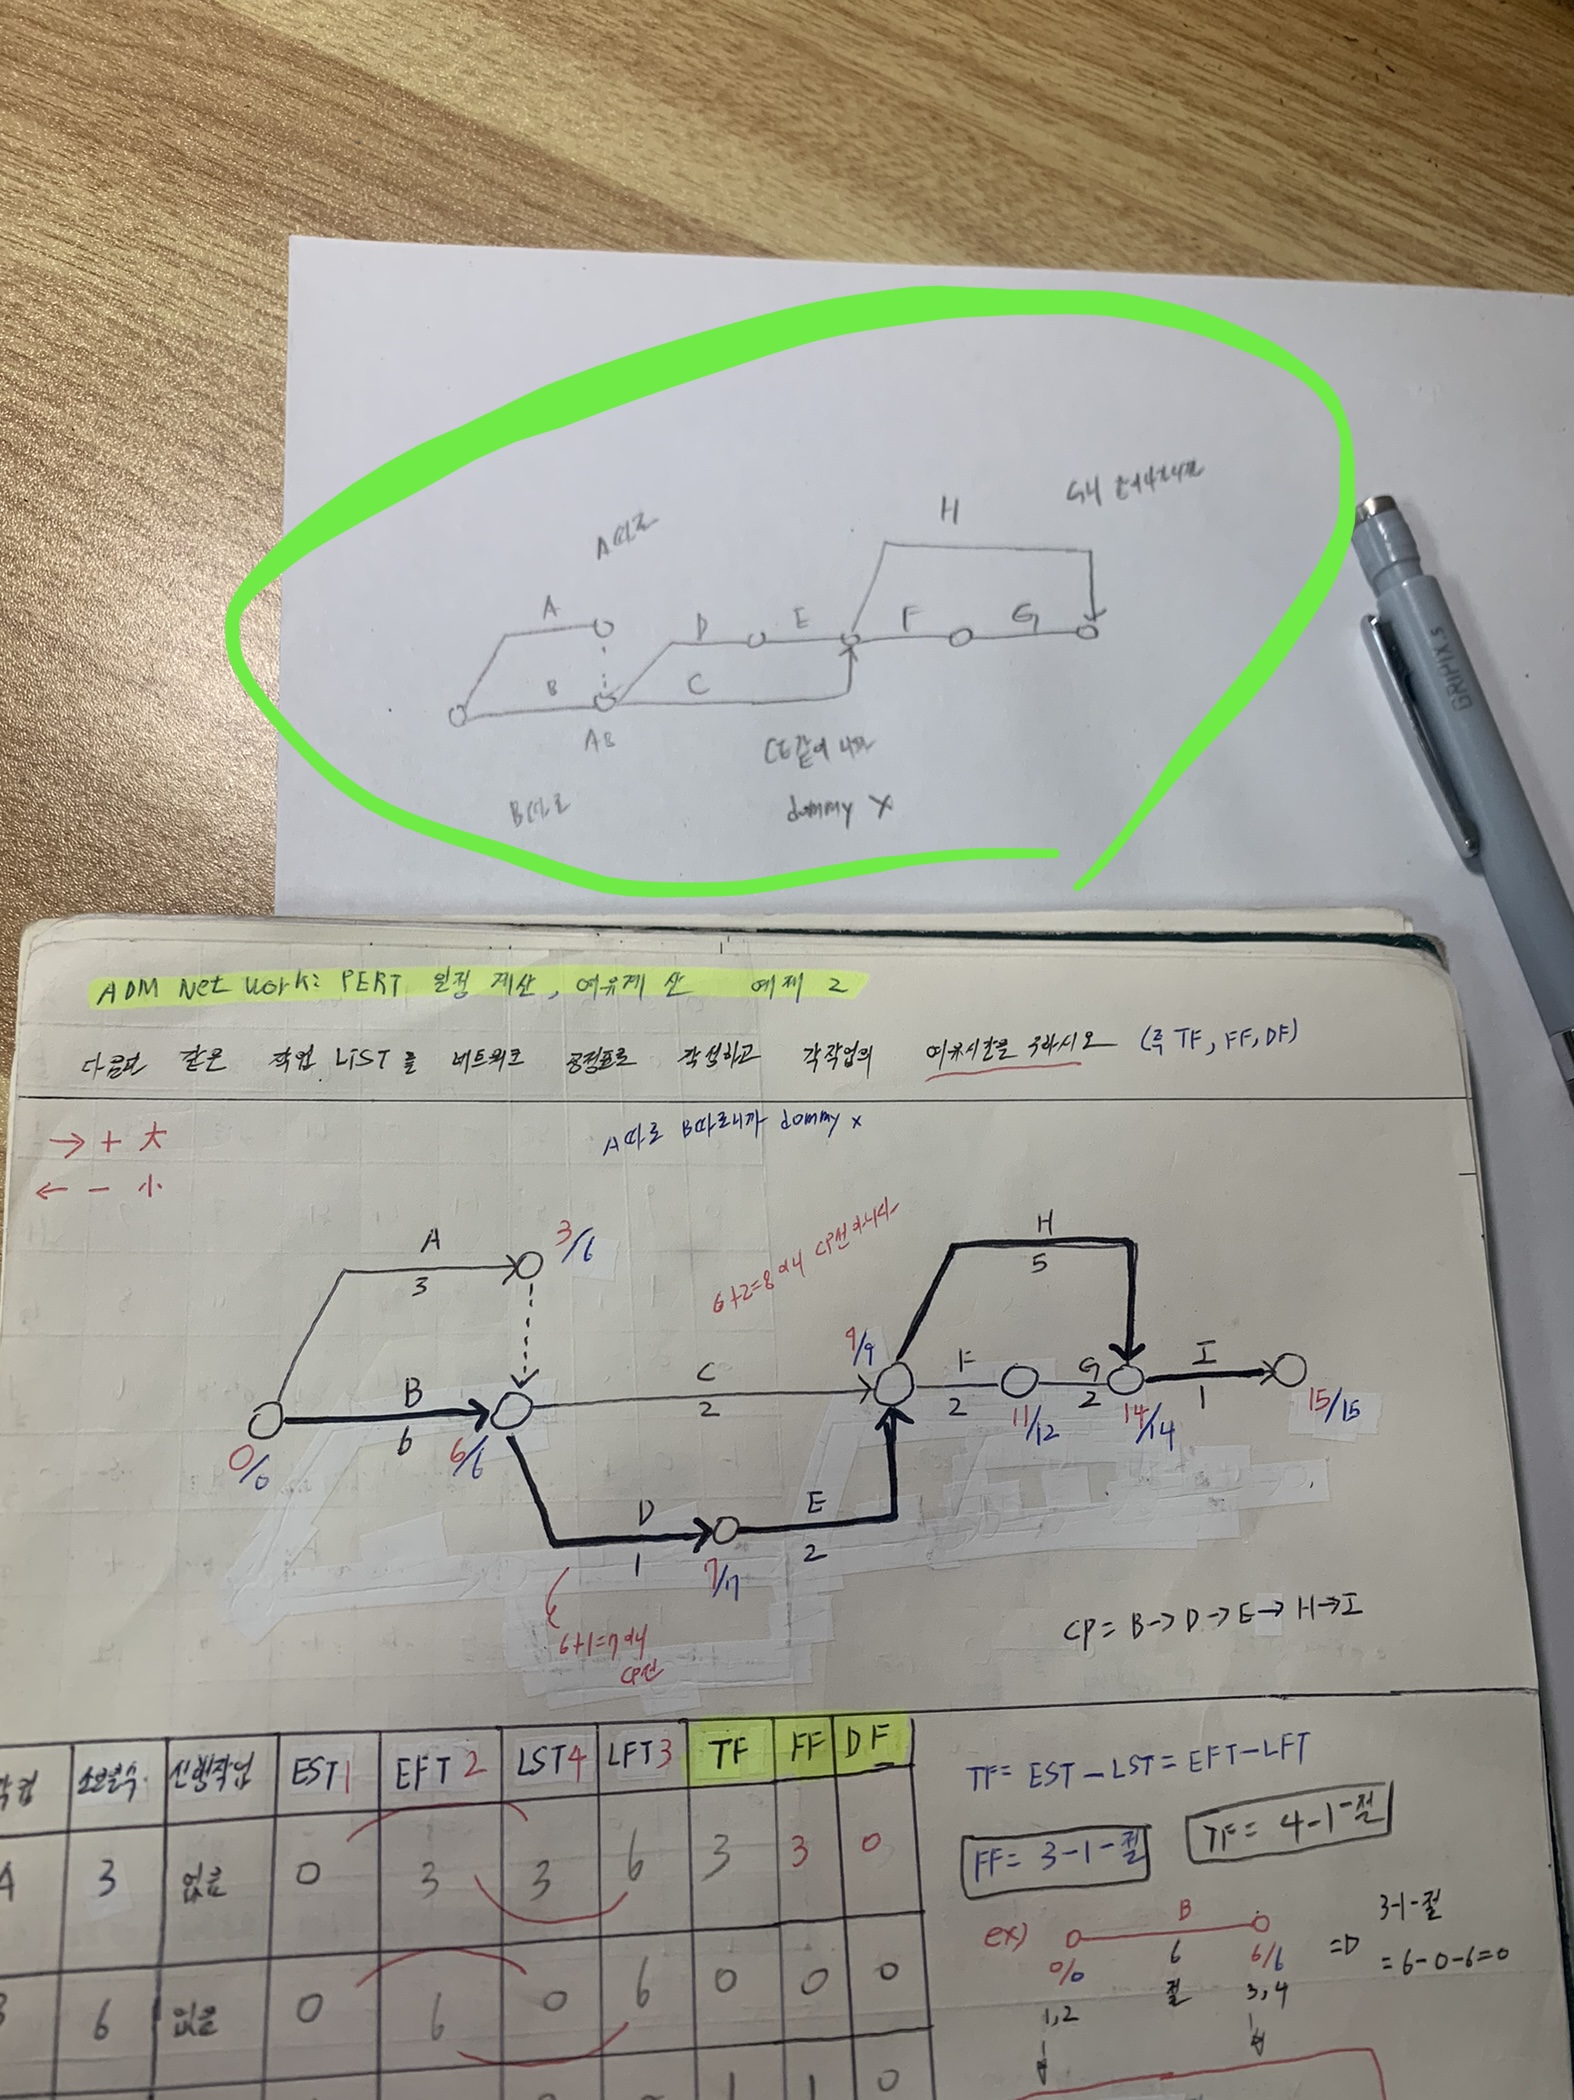 H
A따로
A
D
E
F
G
B
C
AB
CE같이 나와
B따로
dummy X
GRIPIX.5
ADM Net work: PERT 일정 계산, 여유계산 예제 2
다음과 같은 작업 LiST를 네트워크 공정표로 작성하고 각작업의 여유시간을 구하시오 (즉 TF, FF, DF)
→ + 大
← - 小
A따로 B따로니까 dommy x
A
3
3/6
6+2=8 여서 CP선 아니다
H
5
9/9
B
6
0/0
6/6
C
2
F
2
11/12
G
2
14/14
I
1
15/15
D
1
7/7
E
2
6+1=7여서
CP선
CP= B→D→E→H→I
작업 소요일수 선행작업 EST1 EFT2 LST4 LFT3 TF FF DF
A 3 없음 0 3 3 6 3 3 0
B 6 없음 0 6 0 6 0 0 0
1 1 0
TF= EST-LST=EFT-LFT
FF= 3-1-절
TF= 4-1-절
ex)
B
6
0/0
6/6
절
1,2
3,4
=D
3-1-절
=6-0-6=0